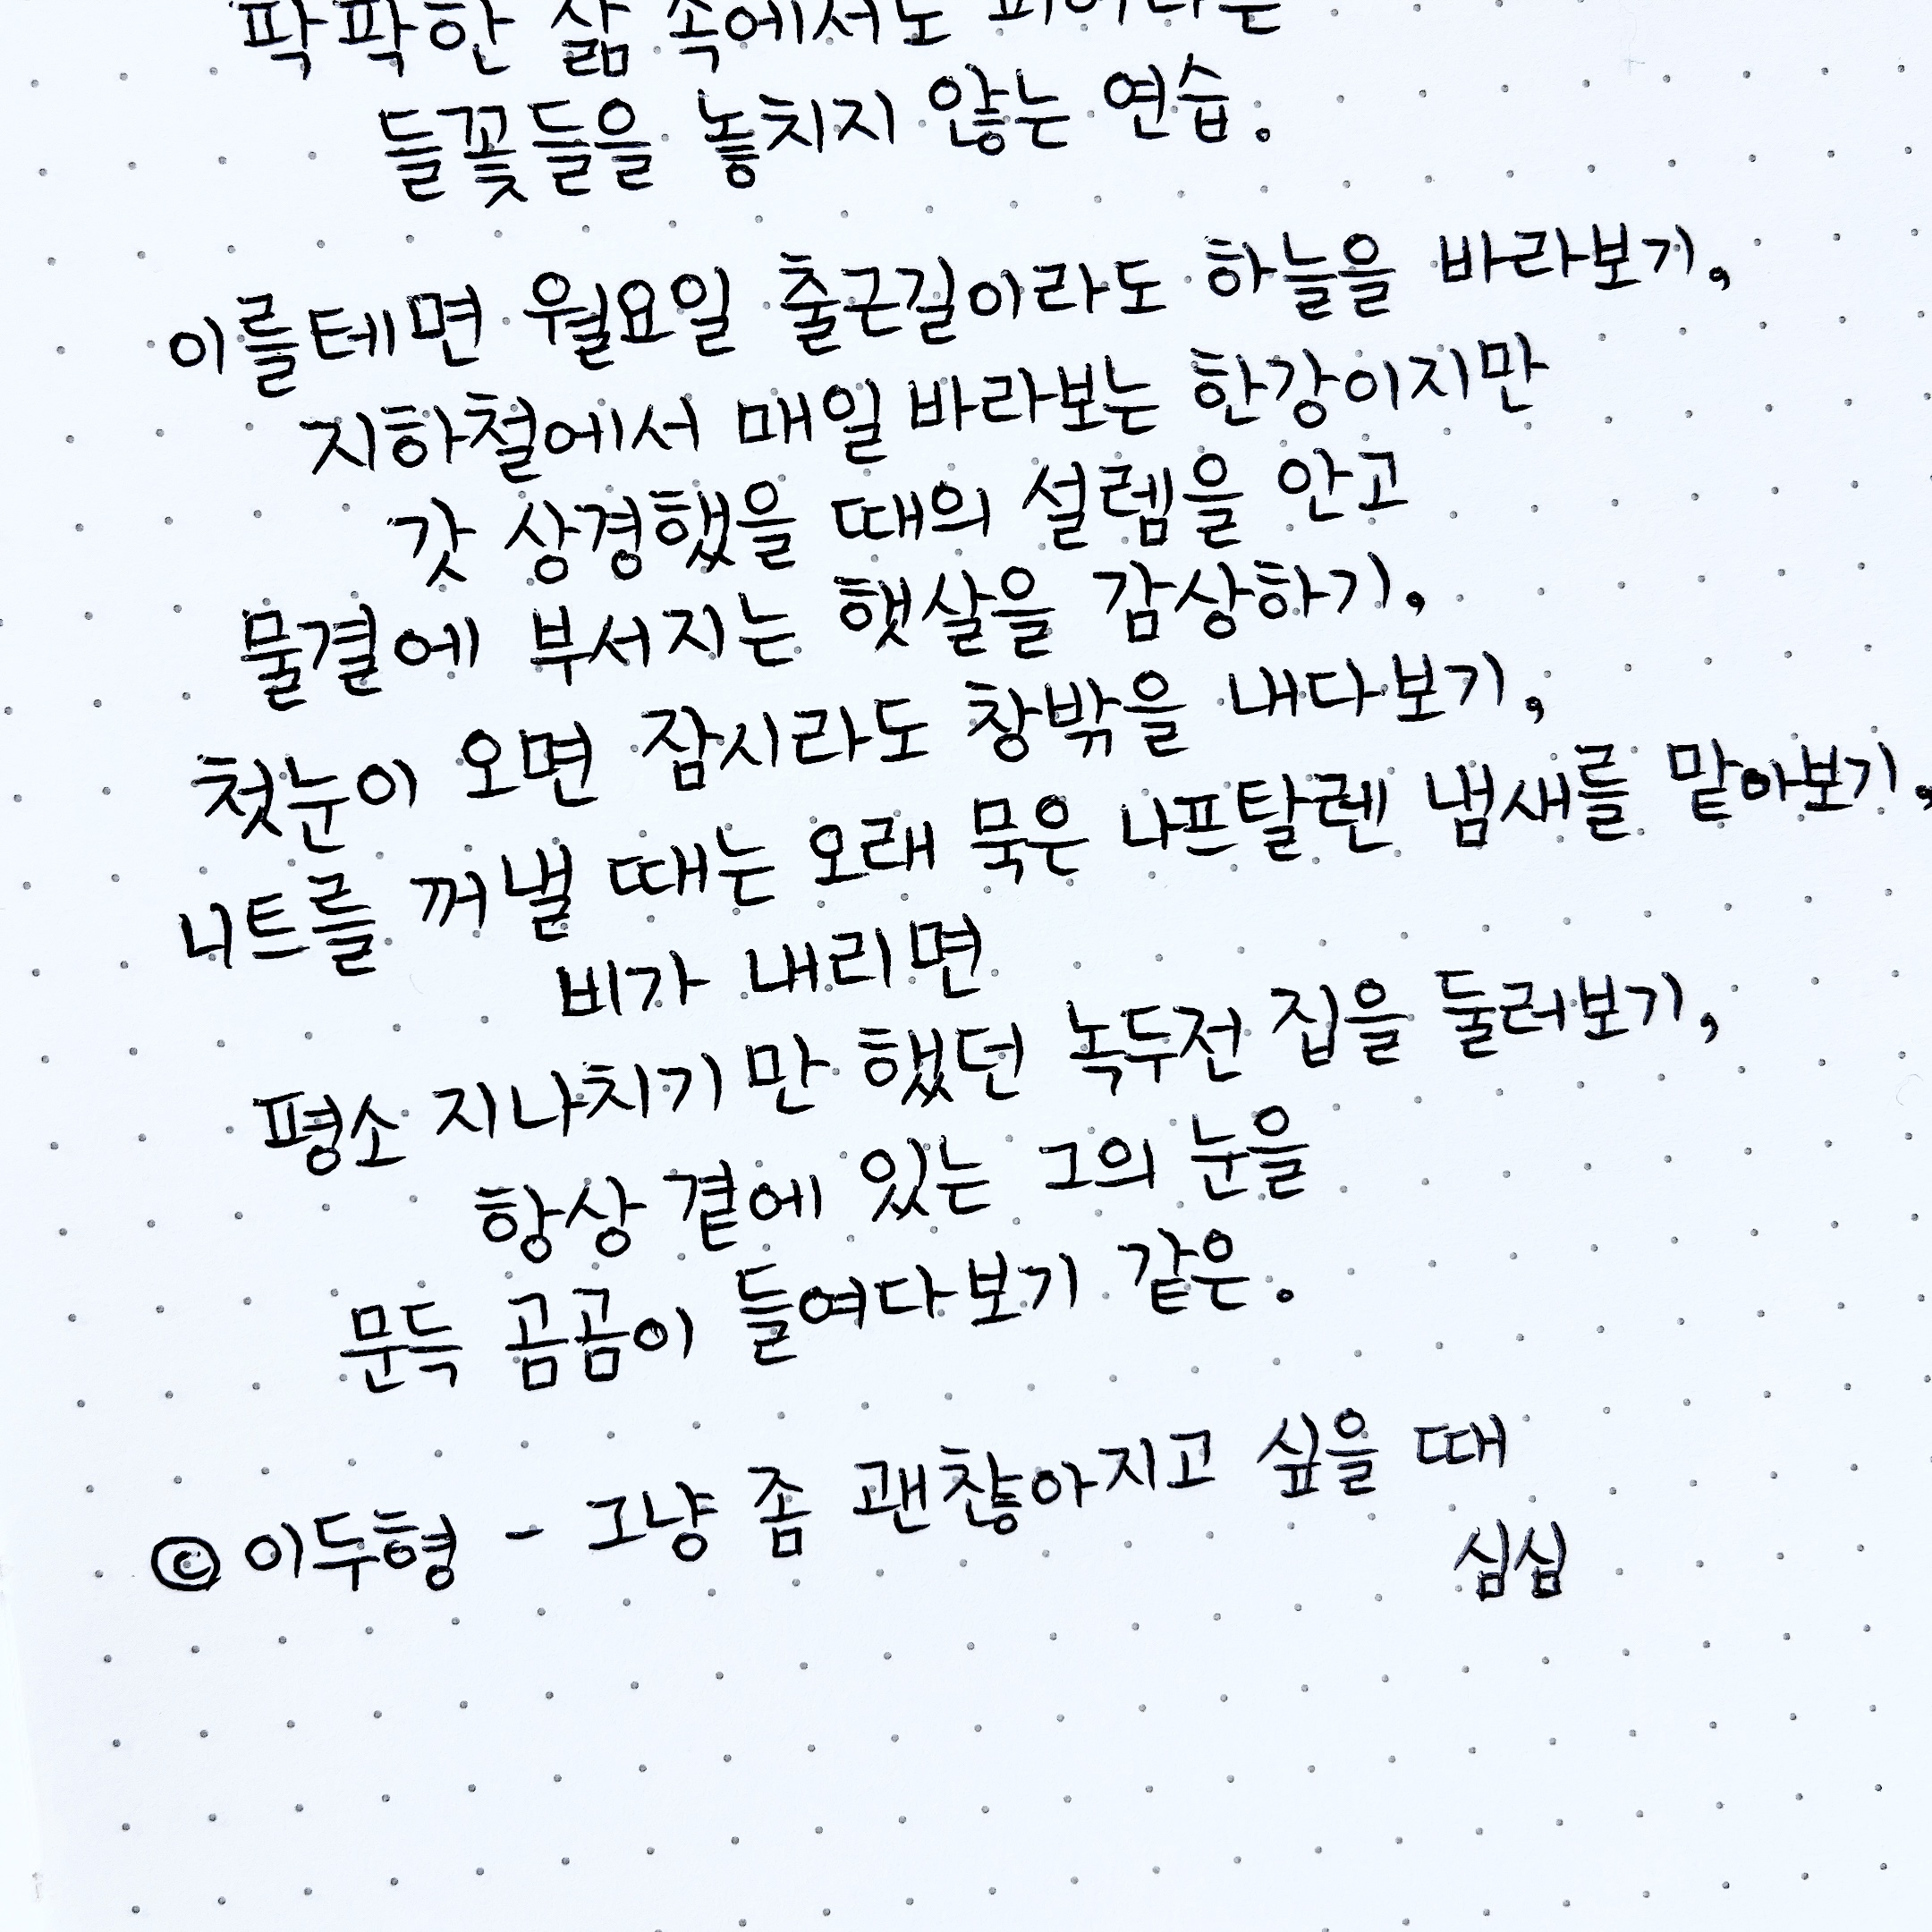 팍팍한 삶 속에서도 피어나는
들꽃들을 놓치지 않는 연습.
이를테면 월요일 출근길이라도 하늘을 바라보기,
지하철에서 매일 바라보는 한강이지만
갓 상경했을 때의 설렘을 안고
물결에 부서지는 햇살을 감상하기,
첫눈이 오면 잠시라도 창밖을 내다보기,
니트를 꺼낼 때는 오래 묵은 나프탈렌 냄새를 맡아보기,
비가 내리면
평소 지나치기만 했던 녹두전 집을 둘러보기,
항상 곁에 있는 그의 눈을
문득 곰곰이 들여다보기 같은.
© 이두형 - 그냥 좀 괜찮아지고 싶을 때
심심